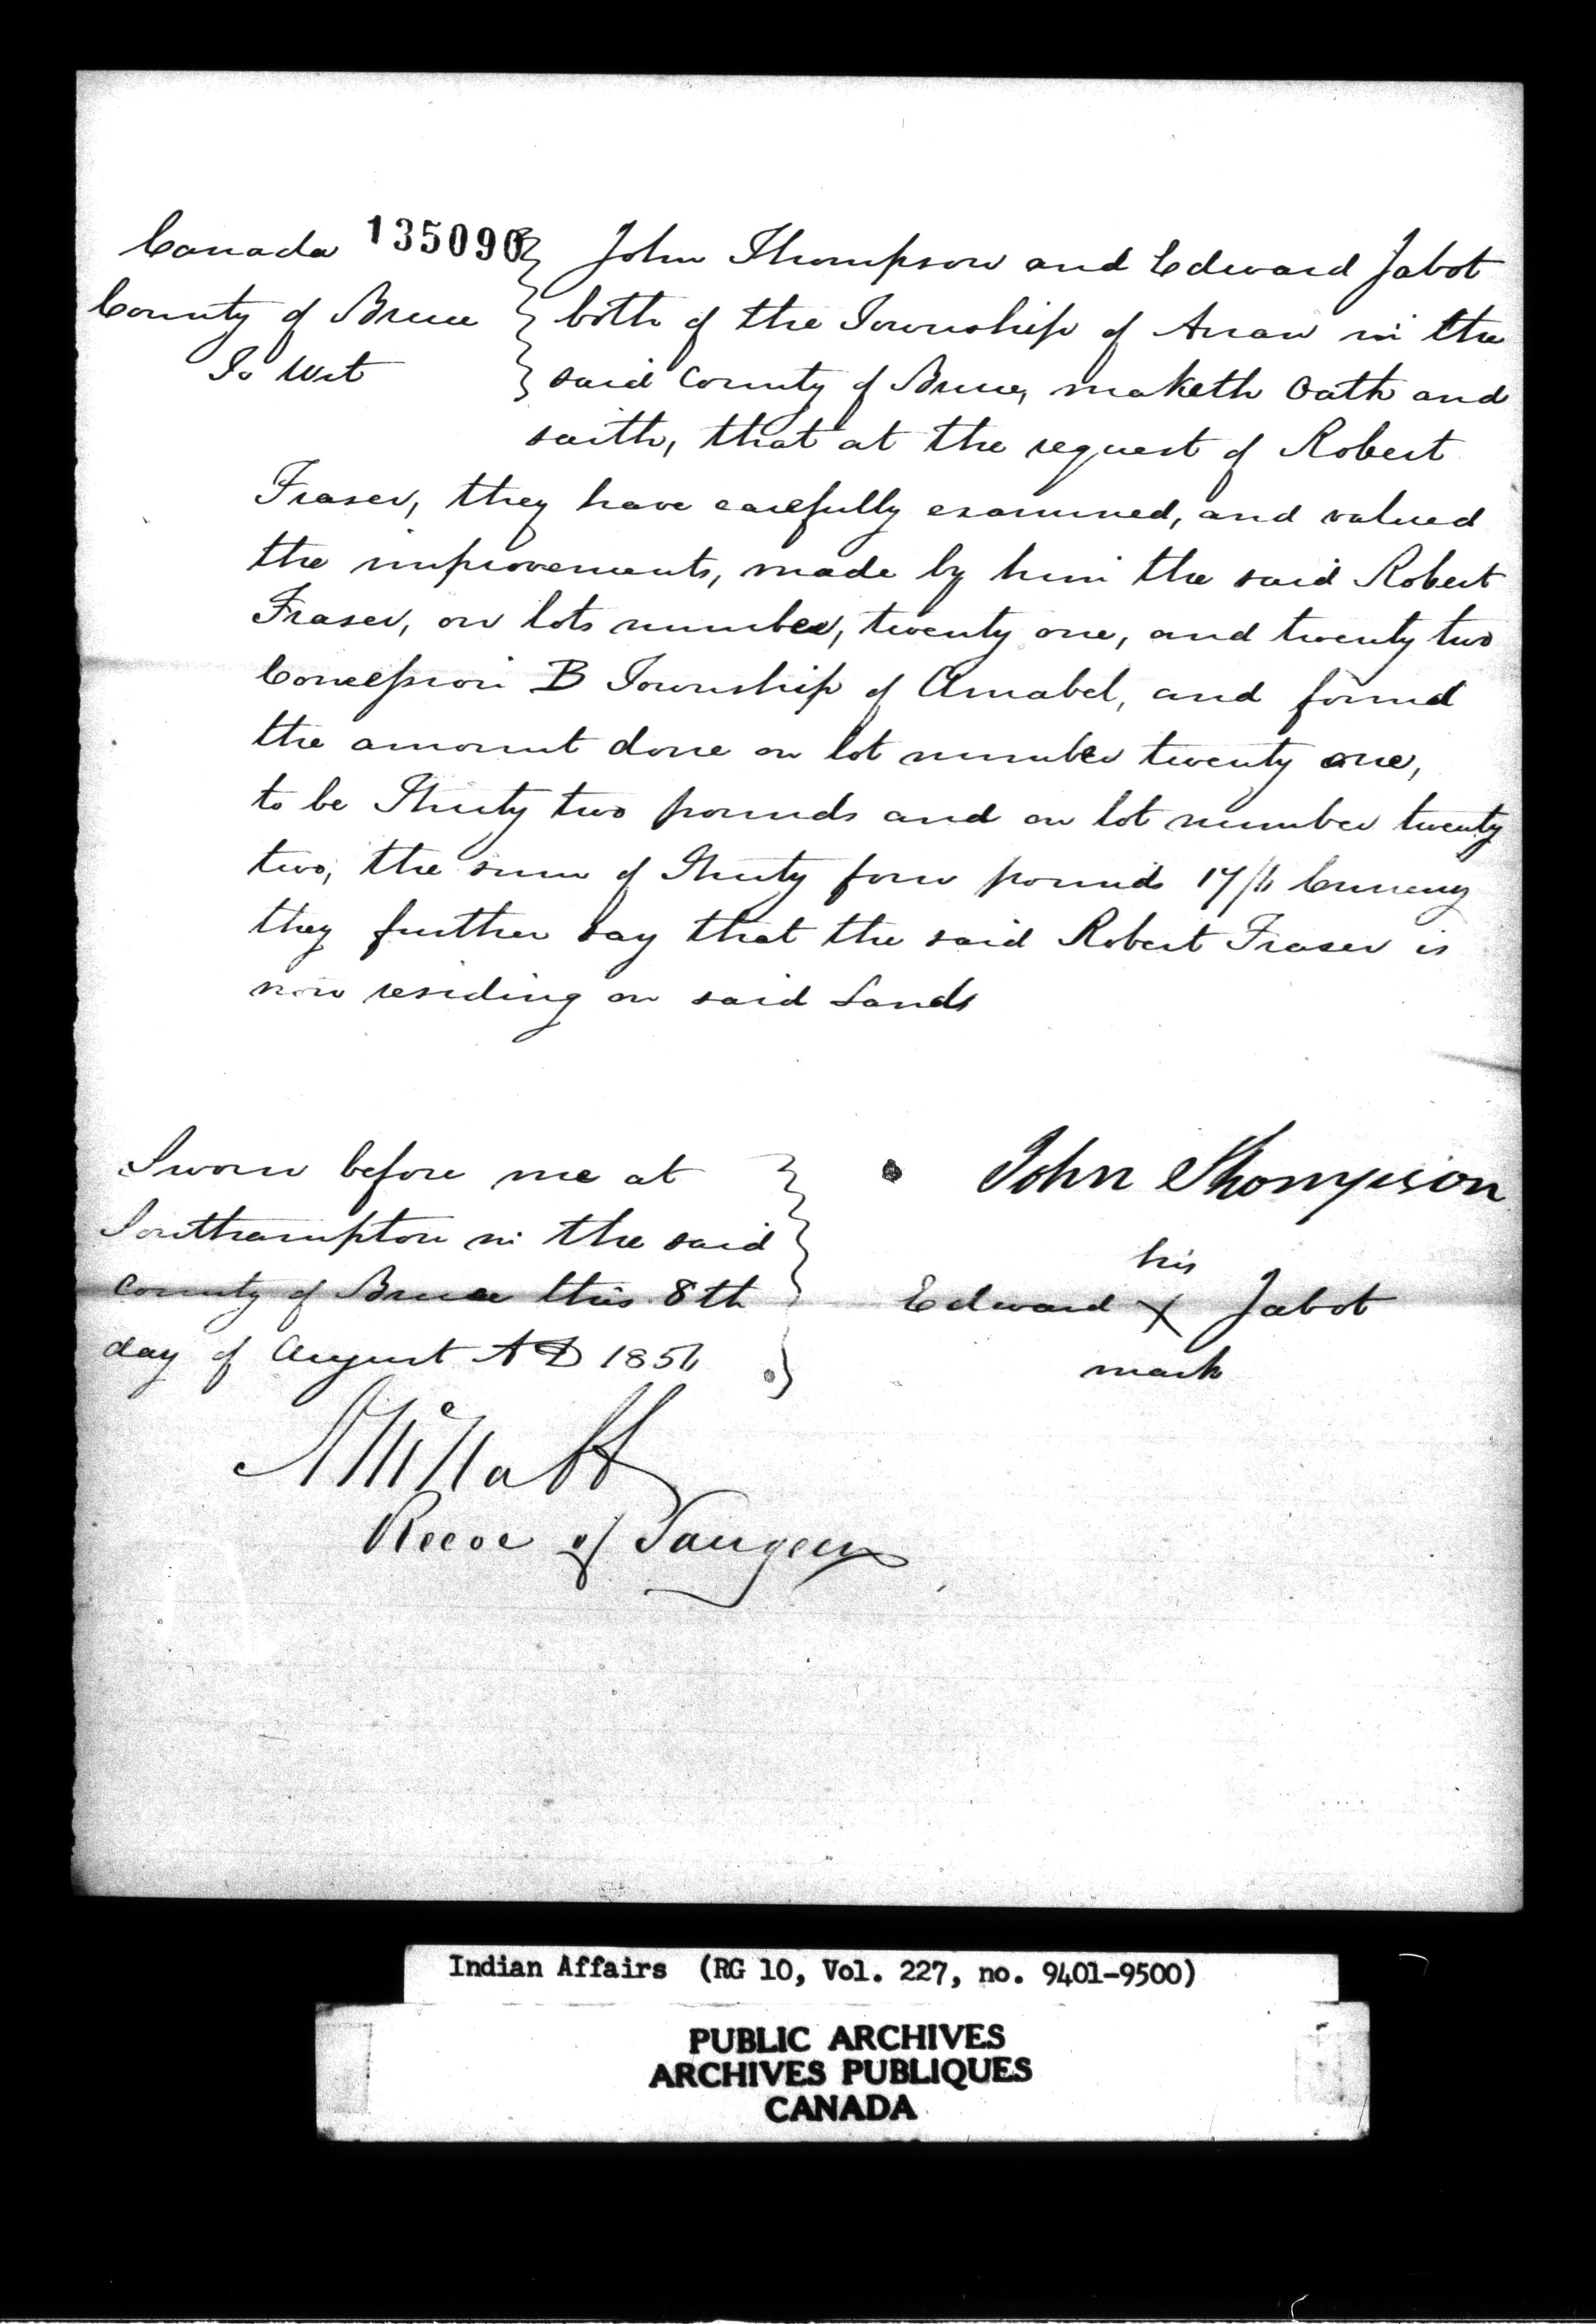 Canada 135090 } John Thompson and Edward Jabot
County of Bruce } both of the Township of Arran in the
To Wit } said County of Bruce, maketh Oath and
saith, that at the request of Robert
Fraser, they have carefully examined, and valued
the improvements, made by him the said Robert
Fraser, on lots number, twenty one, and twenty two
Concession B Township of Amabel, and found
the amount done on lot number twenty one,
to be Thirty two pounds and on lot number twenty
two, the sum of Thirty four pounds 17/6 Currency
they further say that the said Robert Fraser is
now residing on said Lands
Sworn before me at
Southampton in the said
County of Bruce this 8th
day of August A D 1856
John Thompson
his
Edward X Jabot
mark
Reeve of Saugeen
Indian Affairs (RG 10, Vol. 227, no. 9401-9500)
PUBLIC ARCHIVES
ARCHIVES PUBLIQUES
CANADA